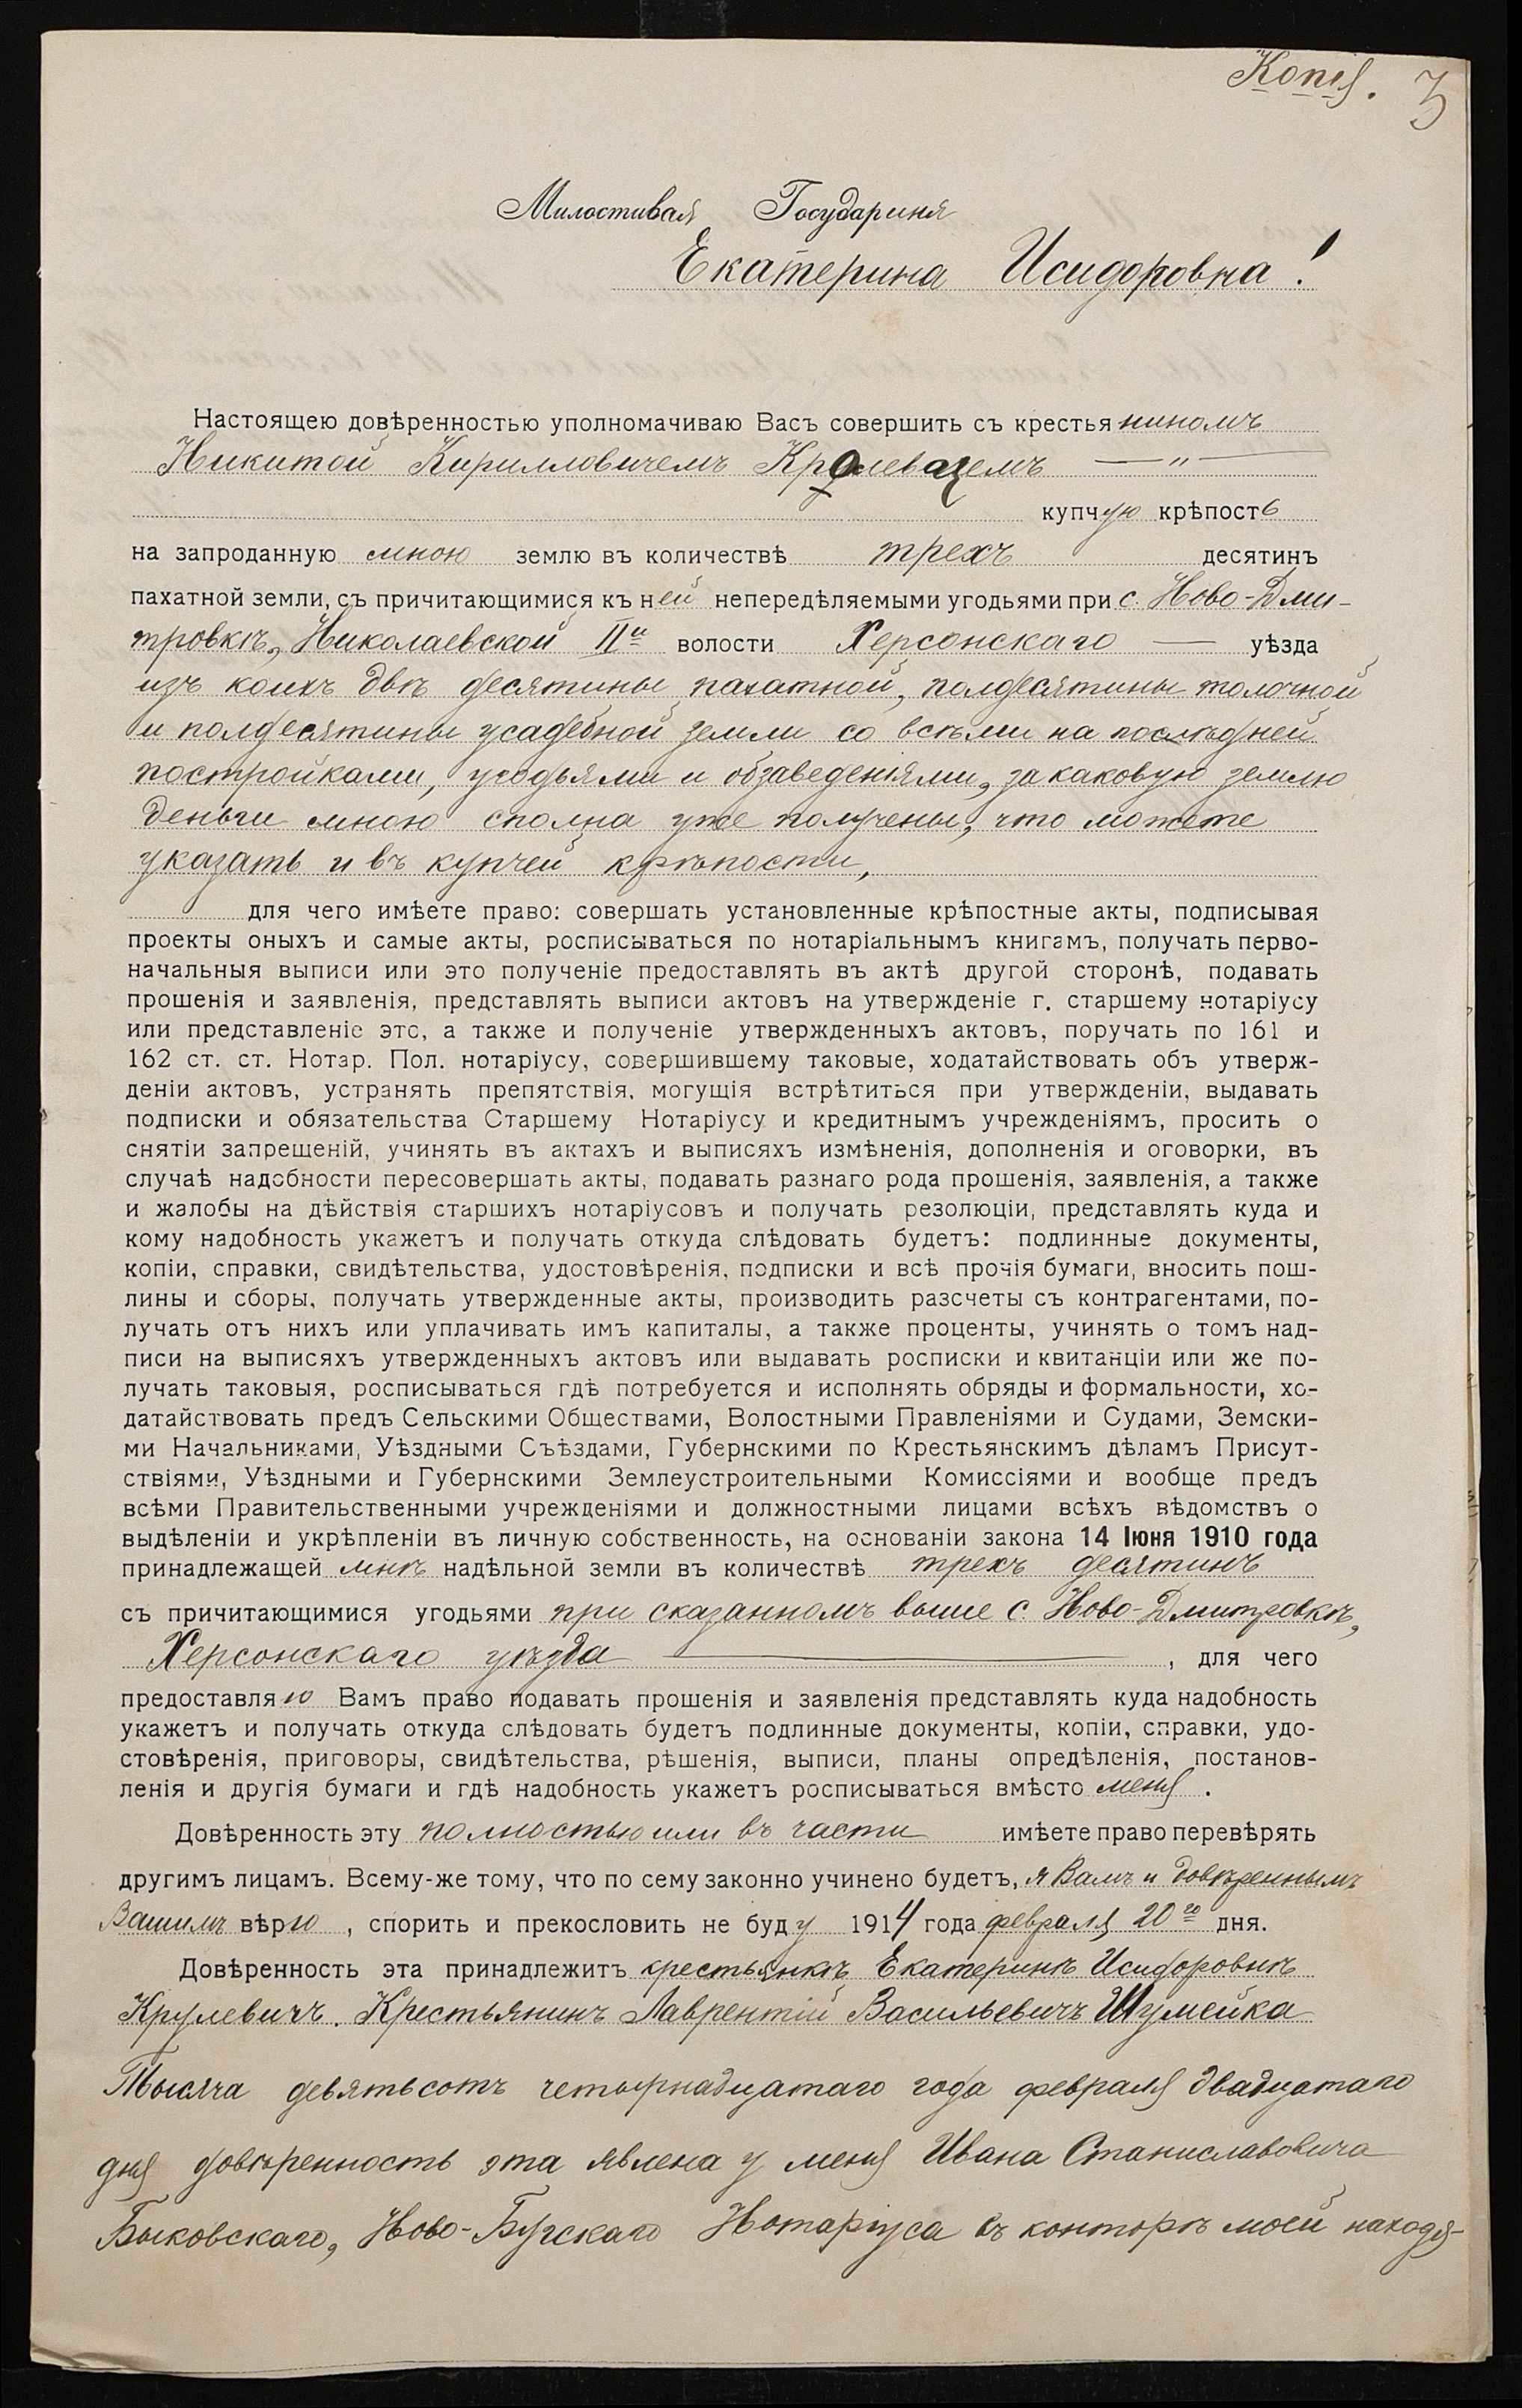 Копія.
3
Милостивая Государиня
Екатерина Исидоровна!
Настоящею довѣренностью уполномачиваю Васъ совершить съ крестьяниномъ
Никитой Кирилловичемъ — „ —
купчую крѣпость
на запроданную мною землю въ количествѣ трехъ десятинъ
пахатной земли, съ причитающимися къ ней непередѣляемыми угодьями при с. Ново-Дми-
тровкѣ, Николаевской IIй волости Херсонскаго — уѣзда
изъ коихъ двѣ десятины пахатной, полдесятины толочной
и полдесятины усадебной земли со всѣми на послѣдней
постройками, угодьями и обзаведеніями, за каковую землю
деньги мною сполна уже получены, что можете
указать и въ купчей крѣпости,
для чего имѣете право: совершать установленные крѣпостные акты, подписывая
проекты оныхъ и самые акты, росписываться по нотаріальнымъ книгамъ, получать перво-
начальныя выписи или это полученіе предоставлять въ актѣ другой сторонѣ, подавать
прошенія и заявленія, представлять выписи актовъ на утвержденіе г. старшему нотаріусу
или представленіе это, а также и полученіе утвержденныхъ актовъ, поручать по 161 и
162 ст. ст. Нотар. Пол. нотаріусу, совершившему таковые, ходатайствовать объ утверж-
деніи актовъ, устранять препятствія, могущія встрѣтиться при утвержденіи, выдавать
подписки и обязательства Старшему Нотаріусу и кредитнымъ учрежденіямъ, просить о
снятіи запрещеній, учинять въ актахъ и выписяхъ измѣненія, дополненія и оговорки, въ
случаѣ надобности пересовершать акты, подавать разнаго рода прошенія, заявленія, а также
и жалобы на дѣйствія старшихъ нотаріусовъ и получать резолюціи, представлять куда и
кому надобность укажетъ и получать откуда слѣдовать будетъ: подлинные документы,
копіи, справки, свидѣтельства, удостовѣренія, подписки и всѣ прочія бумаги, вносить пош-
лины и сборы, получать утвержденные акты, производить разсчеты съ контрагентами, по-
лучать отъ нихъ или уплачивать имъ капиталы, а также проценты, учинять о томъ над-
писи на выписяхъ утвержденныхъ актовъ или выдавать росписки и квитанціи или же по-
лучать таковыя, росписываться гдѣ потребуется и исполнять обряды и формальности, хо-
датайствовать предъ Сельскими Обществами, Волостными Правленіями и Судами, Земски-
ми Начальниками, Уѣздными Съѣздами, Губернскими по Крестьянскимъ дѣламъ Присут-
ствіями, Уѣздными и Губернскими Землеустроительными Комиссіями и вообще предъ
всѣми Правительственными учрежденіями и должностными лицами всѣхъ вѣдомствъ о
выдѣленіи и укрѣпленіи въ личную собственность, на основаніи закона 14 Іюня 1910 года
принадлежащей мнѣ надѣльной земли въ количествѣ трехъ десятинъ
съ причитающимися угодьями при сказанномъ выше с. Ново-Дмитровкѣ,
Херсонскаго уѣзда —, для чего
предоставляю Вамъ право подавать прошенія и заявленія представлять куда надобность
укажетъ и получать откуда слѣдовать будетъ подлинные документы, копіи, справки, удо-
стовѣренія, приговоры, свидѣтельства, рѣшенія, выписи, планы опредѣленія, постанов-
ленія и другія бумаги и гдѣ надобность укажетъ росписываться вмѣсто меня.
Довѣренность эту полностью или въ части имѣете право перевѣрять
другимъ лицамъ. Всему-же тому, что по сему законно учинено будетъ, я Вамъ и довѣреннымъ
Вашимъ вѣрю, спорить и прекословить не буду 1914 года февраля 20го дня.
Довѣренность эта принадлежитъ крестьянкѣ Екатеринѣ Исидоровнѣ
Крулевичъ. Крестьянинъ Лаврентій Васильевичъ Шумейка
Тысяча девятьсотъ четырнадцатаго года февраля двадцатаго
дня довѣренность эта явлена у меня Ивана Станиславовича
Быковскаго, Ново-Бугскаго Нотаріуса въ конторѣ моей находя-